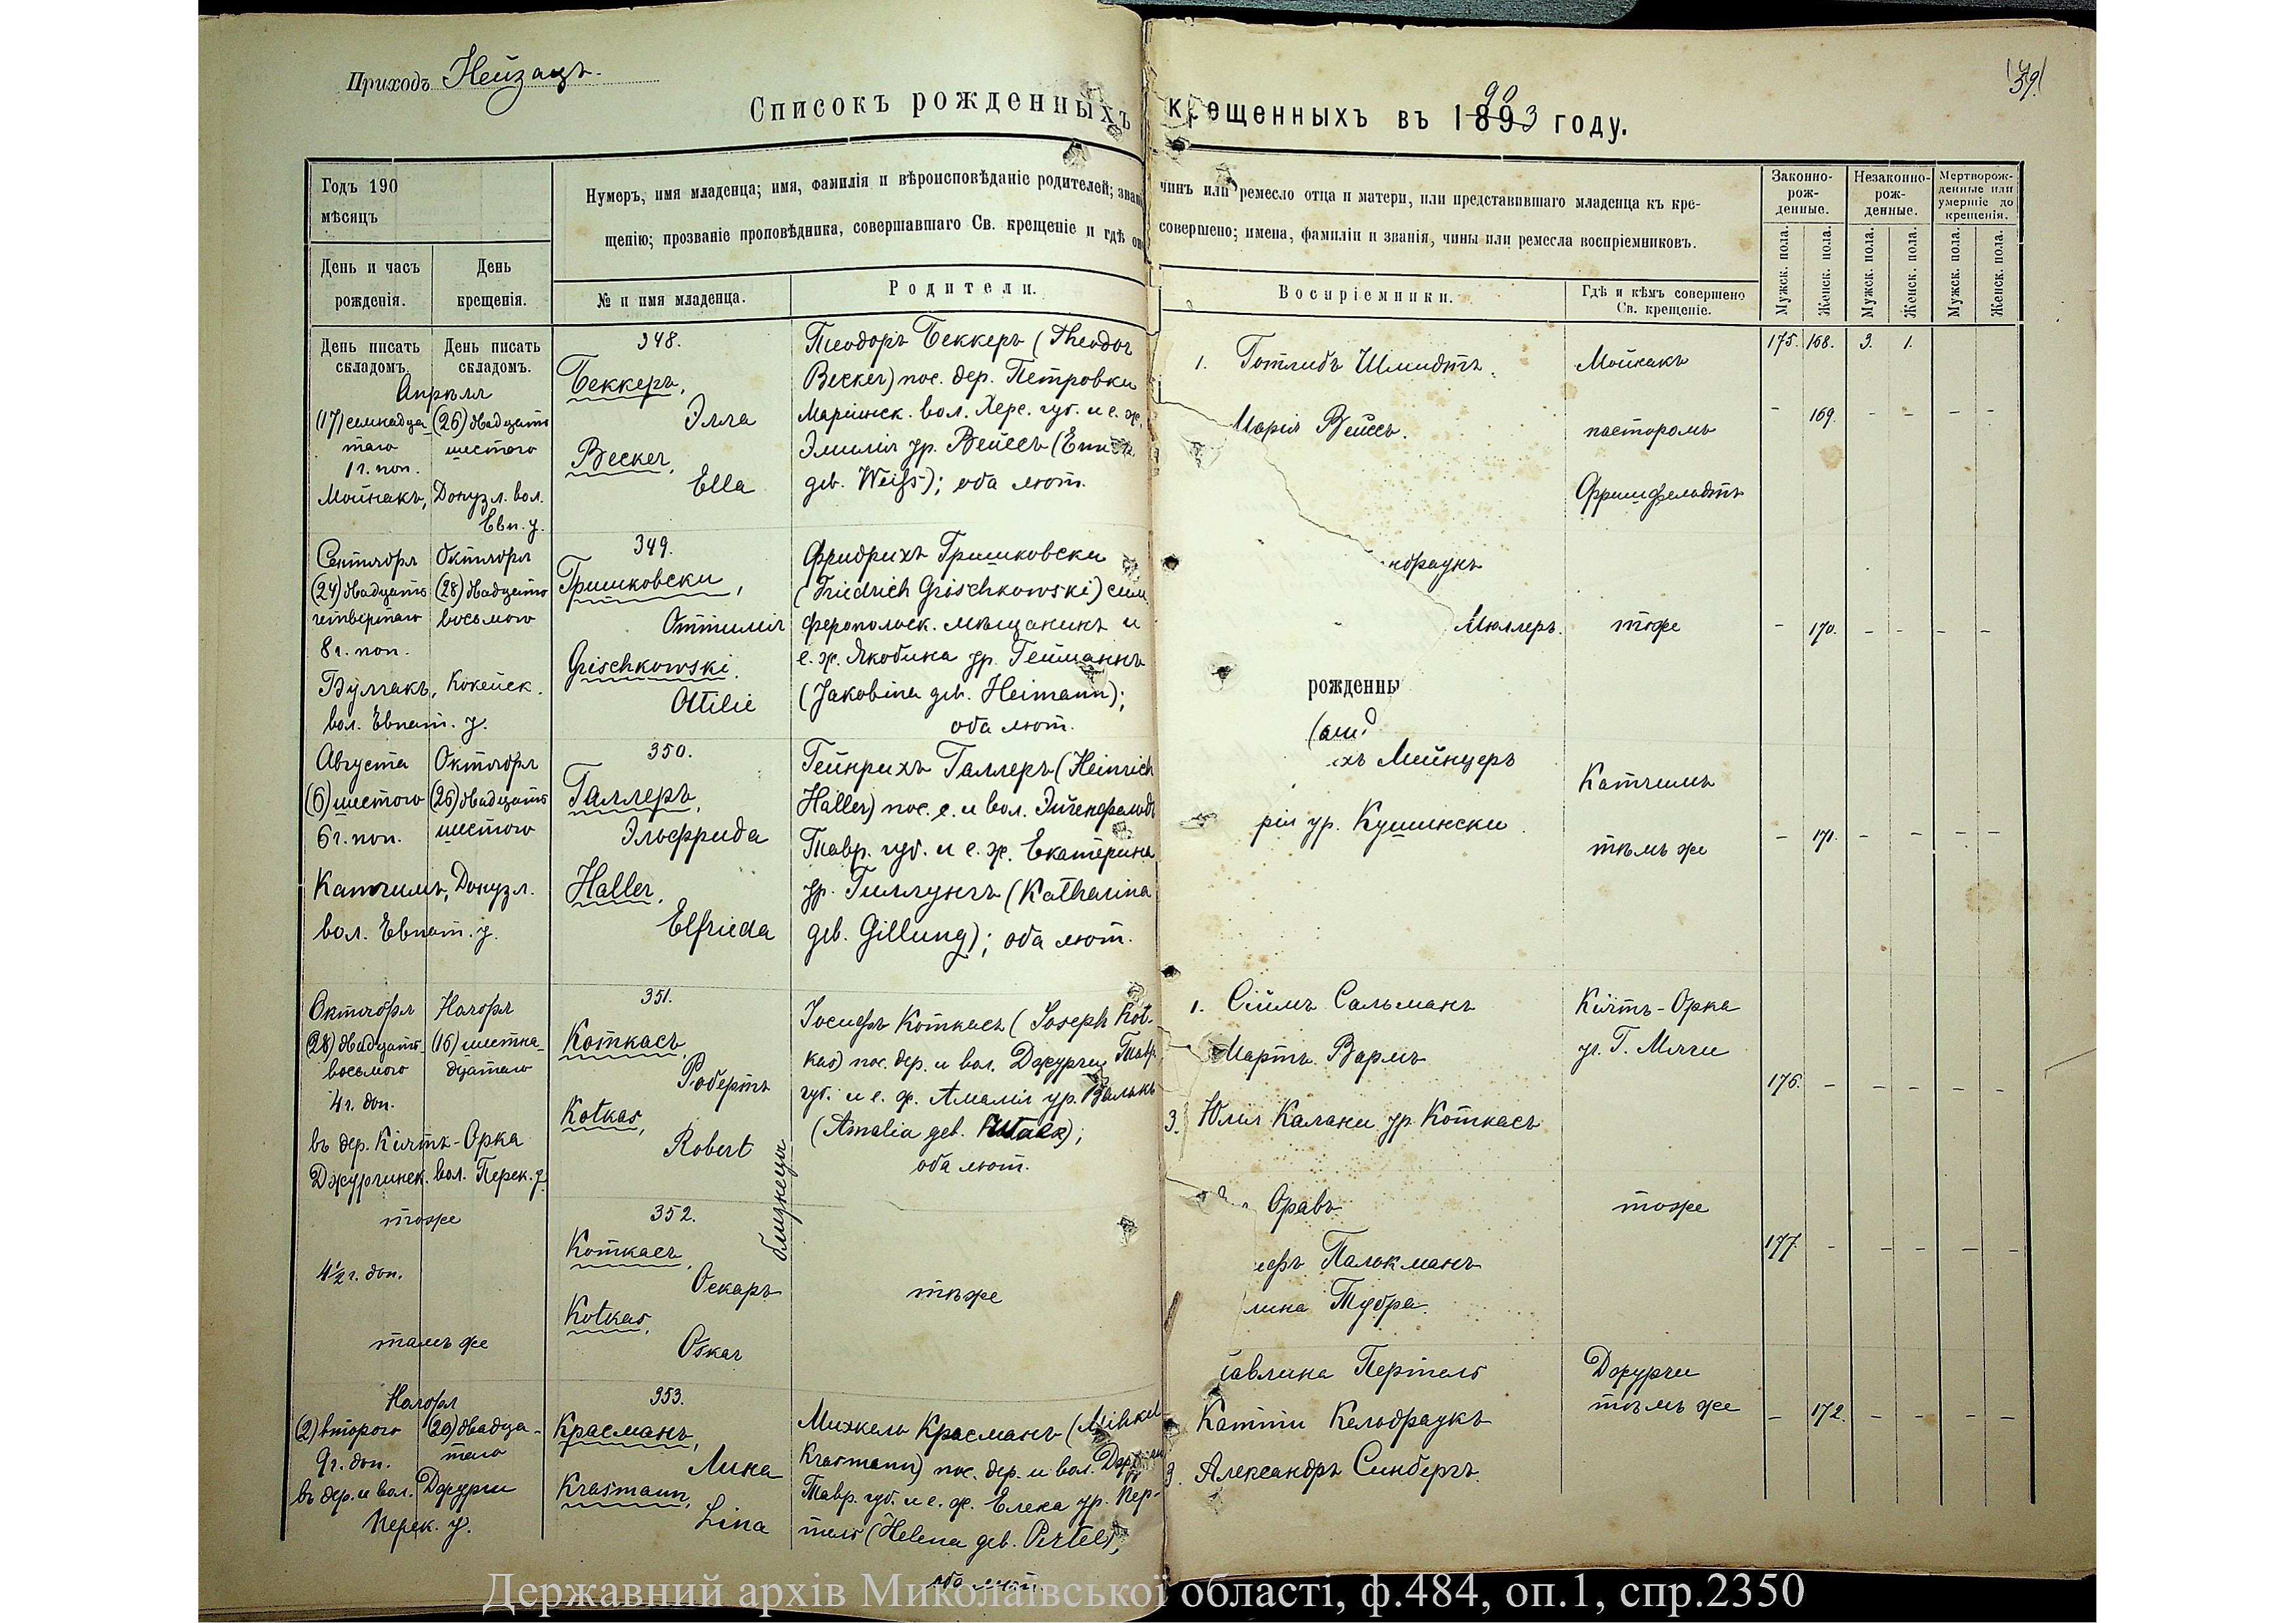 Приходъ Нейзацъ.
39.
Списокъ рожденныхъ крещенныхъ въ 1893 году.
90
Годъ 190
мѣсяцъ
День и часъ рожденія.
День крещенія.
Нумеръ, имя младенца; имя, фамилія и вѣроисповѣданіе родителей; чинъ или ремесло отца и матери, или представившаго младенца къ кре-
щенію; прозваніе проповѣдника, совершавшаго Св. крещеніе и гдѣ совершено; имена, фамиліи и званія, чины или ремесла воспріемниковъ.
№ и имя младенца.
Родители.
Воспріемники.
Гдѣ и кѣмъ совершено Св. крещеніе.
Законно-рож-денные.
Незаконно-рож-денные.
Мертворож-денные или умершіе до крещенія.
Мужск. пола.
Женск. пола.
Мужск. пола.
Женск. пола.
Мужск. пола.
Женск. пола.
День писать складомъ.
День писать складомъ.
Апрѣля
(17) семнадца-
таго
1 г. поп.
(26) двадцать
шестого
Мойнакъ, Донузл. вол.
Евп. у.
348.
Беккеръ,
Элла
Becker,
Ella
Теодоръ Беккеръ (Theodor
Becker) пос. дер. Петровки
Маріинск. вол. Херс. губ. и е. ж.
Эмилія ур. Вейссъ
geb. Weiß); оба лют.
1. Готлибъ Шмидтъ
Марія Вейссъ.
Мойнакъ
пасторомъ
175. 168. 3. 1.
- 169. - - - -
Сентября
(24) двадцать
четвертаго
8 г. поп.
Октября
(28) двадцать
восьмого
Булгакъ, Кокейск.
вол. Евпат. у.
349.
Гришковски,
Оттилія
Grischkowski.
Ottilie
Фридрихъ Гришковски
(Friedrich Grischkowski) сим-
феропольск. мѣщанинъ и
е. ж. Якобина ур. Гейманнъ
(Jakobina geb. Heimann);
оба лют.
Мюллеръ.
тоже
- 170. - - - -
рожденны
Августа
(6) шестого
6 г. поп.
Октября
(26) двадцать
шестого
Катчимъ, Донузл.
вол. Евпат. у.
350.
Галлеръ,
Эльфрида
Haller,
Elfrieda
Гейнрихъ Галлеръ (Heinrich
Haller) пос. с. и вол. Эйгенфельдъ
Тавр. губ. и е. ж. Екатерина
ур. Гиллунгъ (Katharina
geb. Gillung); оба лют.
хъ Мейнцеръ
рія ур. Кушински
Катчимъ
тѣмъ же
- 171. - - - -
Октября
(28) двадцать
восьмого
4 г. доп.
Ноября
(16) шестна-
дцатаго
въ дер. Кіятъ-Орка
Джурчинск. вол. Перек. у.
351.
Коткасъ,
Робертъ
Kotkas,
Robert
близнецы
Іосифъ Коткасъ (Joseph Kot-
kas) пос. дер. и вол. Джурчи Тавр.
губ. и е. ж. Амалія ур. Валькъ
(Amalia geb.
оба лют.
1. Сіимъ Сальманъ
Мартъ Вармъ
3. Юлія Калани ур. Коткасъ
Кіятъ-Орка
уч. Г. Мяги
176. - - - - -
тоже
4½ г. доп.
тамъ же
352.
Коткасъ,
Оскаръ
Kotkas,
Oskar
тѣже
Оравъ
ефъ Палокманъ
лина Тубра.
тоже
177. - - - - -
Ноября
(2) второго
9 г. доп.
(20) двадца-
таго
въ дер. и вол. Джурчи
Перек. у.
353.
Красманъ,
Лина
Krasmann,
Lina
Михкель Красманъ (Mihkel
Krasmann) пос. дер. и вол. Джурчи
Тавр. губ. и е. ж. Елена ур. Пер-
тель (Helena geb. Pertel),
оба лют.
авлина Пертель
Катти Кельдраукъ
3. Александръ Синбергъ.
Джурчи
тѣмъ же
- 172. - - - -
Державний архів Миколаївської області, ф.484, оп.1, спр.2350